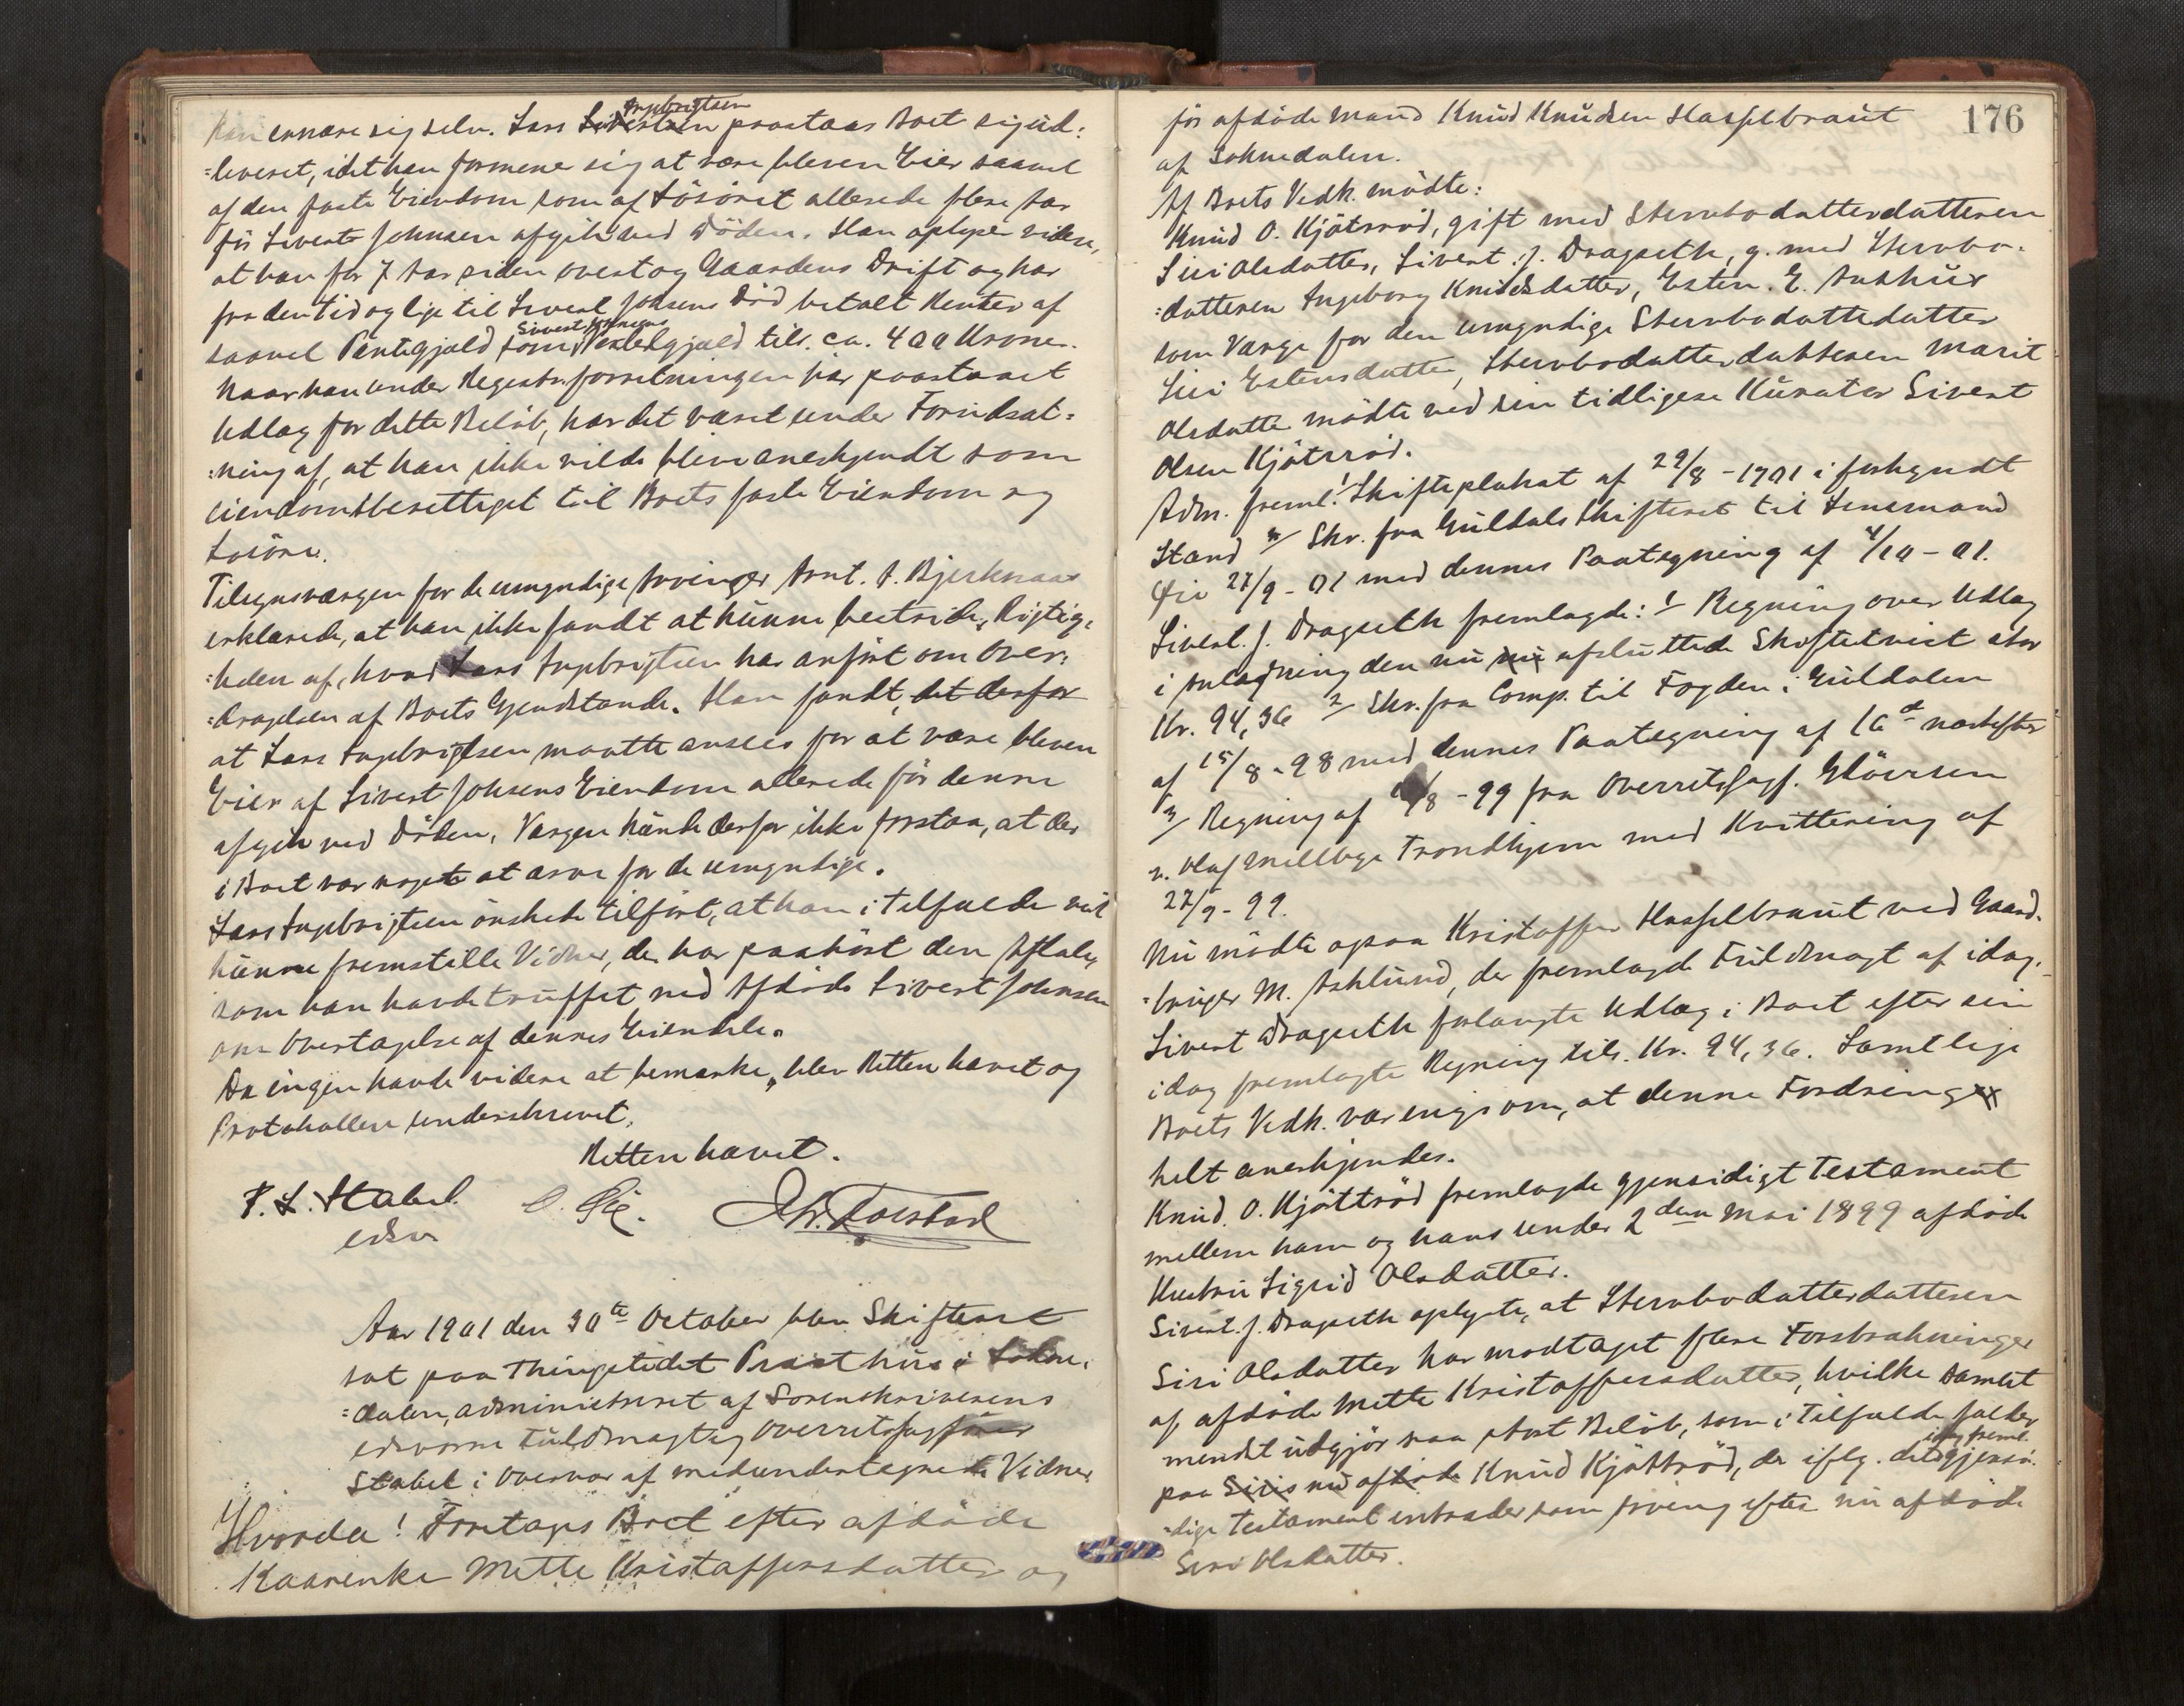 kan ernære sig selv. Lars Ingebrigtsen paastaar Boet sigud:
=leveret, idet han formener sig at være bleven Eier saavel
af den faste Eiendom som af Løsøret allerede flere Aar
før Sivert Johnsen afgik ved Døden. Han oplyser videre,
at han for 7 Aar siden overtog Gaardens Drift og har
fra den Tid og lige til Sivert Johsens Død betalt Renter af
saavel Pantegjæld som Sivert Johnsens Vexelgjæld tils. ca. 400 Kroner.
Naar han under Registr.forretningen har paastaaet
Udlæg for dette Beløb, har det været under Forudsæt=
=ning af, at han ikke vilde blive anerkjendt som
eiendomsberettiget til Boets faste Eiendom og
Løsøre.
Tilsynsværgen for de umyndige Arvinger Arnt. A. Bjerknaas
erklærede, at han ikke fandt at kunne bestride Rigtig=
=heden af, hvad Lars Ingebrigtsen har anført om Over=
=dragelsen af Boets Gjenstande. Han fandt, det derfor
at Lars Ingebrigtsen maatte ansees for at være bleven
Eier af Sivert Johsens Eiendom allerede før denne
afgik ved Døden. Værgen kunde derfor ikke forstaa, at der
i Boet var noget at arve for de umyndige.
Lars Ingebrigtsen ønskede tilført, at han i Tilfælde vil
kunne fremstille Vidner, der har paahørt den Aftale,
som han havde truffet med Afdøde Sivert Johnsen
om Overtagelse af dennes Eiendele.
Da ingen havde videre at bemærke, blev Retten hævet og
Protokollen underskrevet.
Retten hævet.
P. L. Stabel.
edsv
Aar 1901 den 30te October blev Skifteret
sat paa Thingstedet Præsthus i Sokne=
=dalen, administreret af Sorenskriverens
edsvorne Fuldmægtig Overretssagfører
Stabel i Overvær af medundertegnede Vidner.
Hvorda! Foretages Boet efter afdøde
Kaarenke Mette Kristoffersdatter og
176
før afdøde Mand Knud Knudsen Hasselbraut
af Soknedalen.
Af Boets Vedk. mødte:
Knud O. Kjøtsrød, gift med Stervbodatterdatteren
Siri Olsdatter, Sivert. J. Dragseth, g. med Stervbo=
=datteren Ingeborg Knudsdatter, Esten. E. Aushus
som Værge for den umyndige Stervbodatterdatter
Siri Estensdatter, Stervbodatterdatteren Marit
Olsdatter mødte ved sin tidligere Kurator Sivert
Olsen Kjøtsrød.
Adm. freml. 1/ Skifteplakat af 29/8 - 1901 i forkyndt
Stand 2/ Skr. fra Guldals Skifteret til Lensmand
Øie 27/9 - 01 med dennes Paategning af 4/10 - 01.
Sivert. J. Dragseth fremlagde: 1/ Regning over Udlæg
i Anledning den nu afsluttede Skiftetvist stor
Kr. 94,36 2/ Skr. fra Comp. til Fogden i Guldalen
af 15/8 - 98 med dennes Paategning af 16d næstefter
3/ Regning af /8 - 99 fra Overretssagf. Gløersen
v. Olaf Mellbye Trondhjem med Kvittering af
27/9 - 99.
Nu mødte ogsaa Kristoffer Hasselbraut ved Gaard=
=bruger M. Asklund, der fremlagde Fuldmagt af idag.
Sivert Dragseth forlangte Udlæg i Boet efter sin
idag fremlagte Regning tils. Kr. 94,36. Samtlige
Boets Vedk. var enig om, at denne Fordring
helt anerkjendes.
Knud. O. Kjøttrød fremlagde gjensidigt Testament
mellem ham og hans under 2den Mai 1899 afdøde
Hustru Sigrid Olsdatter.
Sivert. J. Dragseth oplyste, at Stervbodatterdatteren
Siri Olsdatter har modtaget flere Forstrækninger
af afdøde Mette Kristoffersdatter, hvilke sammen
mendt udgjør saa stort Beløb, som i Tilfælde falder
paa Siris nu afdøde Knud Kjøttrød, der iflg. det idag freml. gjensi=
=dige Testament intræder som Arving efter nu afdøde
Siri Olsdatter.